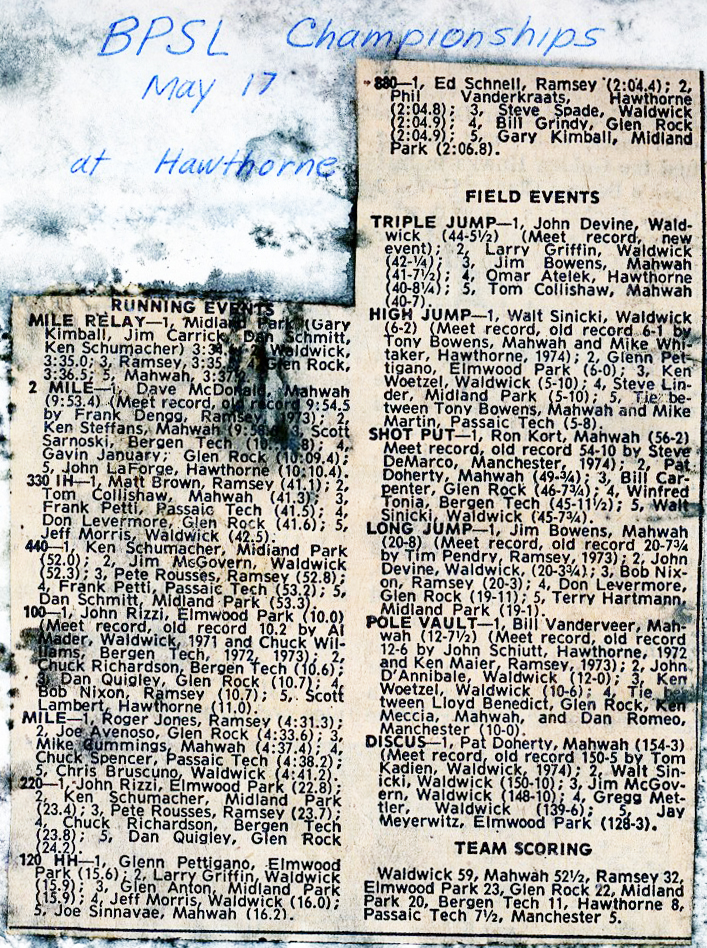 BPSL Championships
May 17
at Hawthorne
RUNNING EVENTS
MILE RELAY—1, Midland Park (Gary
Kimball, Jim Carrick, Dan Schmitt,
Ken Schumacher) Waldwick,
3:35.0; 3, Ramsey, Glen Rock,
3:36.5; 5, Mahwah,
2 MILE—1, Dave McDonald, Mahwah
(9:53.4) (Meet record, old record 9:54.5
by Frank Dengg, Ramsey, 1973); 2,
Ken Steffans, Mahwah Scott
Sarnoski, Bergen Tech
Gavin January, Glen Rock (10:09.4);
5, John LaForge, Hawthorne (10:10.4).
330 IH—1, Matt Brown, Ramsey (41.1); 2,
Tom Collishaw, Mahwah (41.3); 3,
Frank Petti, Passaic Tech (41.5); 4,
Don Levermore, Glen Rock (41.6); 5,
Jeff Morris, Waldwick (42.5).
440—1, Ken Schumacher, Midland Park
(52.0); 2, Jim McGovern, Waldwick
(52.3); 3, Pete Rousses, Ramsey (52.8);
4, Frank Petti, Passaic Tech (53.2); 5,
Dan Schmitt, Midland Park (53.3)
100—1, John Rizzi, Elmwood Park (10.0)
(Meet record, old record 10.2 by Al
Mader, Waldwick, 1971 and Chuck Wil-
liams, Bergen Tech, 1972, 1973); 2,
Chuck Richardson, Bergen Tech (10.6);
3, Dan Quigley, Glen Rock (10.7); 4,
Bob Nixon, Ramsey (10.7); 5, Scott
Lambert, Hawthorne (11.0).
MILE—1, Roger Jones, Ramsey (4:31.3);
2, Joe Avenoso, Glen Rock (4:33.6); 3,
Mike Cummings, Mahwah (4:37.4); 4,
Chuck Spencer, Passaic Tech (4:38.2);
5, Chris Bruscuno, Waldwick (4:41.2).
220—1, John Rizzi, Elmwood Park (22.8);
2, Ken Schumacher, Midland Park
(23.4); 3, Pete Rousses, Ramsey (23.7);
4, Chuck Richardson, Bergen Tech
(23.8); 5, Dan Quigley, Glen Rock
(24.2).
120 HH—1, Glenn Pettigano, Elmwood
Park (15.6); 2, Larry Griffin, Waldwick
(15.9); 3, Glen Anton, Midland Park
(15.9); 4, Jeff Morris, Waldwick (16.0);
5, Joe Sinnavae, Mahwah (16.2).
880—1, Ed Schnell, Ramsey (2:04.4); 2,
Phil Vanderkraats, Hawthorne
(2:04.8); 3, Steve Spade, Waldwick
(2:04.9); 4, Bill Grindy, Glen Rock
(2:04.9); 5, Gary Kimball, Midland
Park (2:06.8).
FIELD EVENTS
TRIPLE JUMP—1, John Devine, Wald-
wick (44-5½) (Meet record, new
event); 2, Larry Griffin, Waldwick
(42-¼); 3, Jim Bowens, Mahwah
(41-7½); 4, Omar Atelek, Hawthorne
(40-8¼); 5, Tom Collishaw, Mahwah
(40-7).
HIGH JUMP—1, Walt Sinicki, Waldwick
(6-2) (Meet record, old record 6-1 by
Tony Bowens, Mahwah and Mike Whi-
taker, Hawthorne, 1974); 2, Glenn Pet-
tigano, Elmwood Park (6-0); 3, Ken
Woetzel, Waldwick (5-10); 4, Steve Lin-
der, Midland Park (5-10); 5, Tie be-
tween Tony Bowens, Mahwah and Mike
Martin, Passaic Tech (5-8).
SHOT PUT—1, Ron Kort, Mahwah (56-2)
Meet record, old record 54-10 by Steve
DeMarco, Manchester, 1974); 2, Pat
Doherty, Mahwah (49-¾); 3, Bill Car-
penter, Glen Rock (46-7¾); 4, Winfred
Tonia, Bergen Tech (45-11½); 5, Walt
Sinicki, Waldwick (45-7¾).
LONG JUMP—1, Jim Bowens, Mahwah
(20-8) (Meet record, old record 20-7¾
by Tim Pendry, Ramsey, 1973); 2, John
Devine, Waldwick, (20-3¾); 3, Bob Nix-
on, Ramsey (20-3); 4, Don Levermore,
Glen Rock (19-11); 5, Terry Hartmann,
Midland Park (19-1).
POLE VAULT—1, Bill Vanderveer, Mah-
wah (12-7½) (Meet record, old record
12-6 by John Schiutt, Hawthorne, 1972
and Ken Maier, Ramsey, 1973); 2, John
D'Annibale, Waldwick (12-0); 3, Ken
Woetzel, Waldwick (10-6); 4, Tie be-
tween Lloyd Benedict, Glen Rock, Ken
Meccia, Mahwah, and Dan Romeo,
Manchester (10-0).
DISCUS—1, Pat Doherty, Mahwah (154-3)
(Meet record, old record 150-5 by Tom
Kadien, Waldwick, 1974); 2, Walt Sin-
icki, Waldwick (150-10); 3, Jim McGov-
ern, Waldwick (148-10); 4, Gregg Met-
tler, Waldwick (139-6); 5, Jay
Meyerwitz, Elmwood Park (128-3).
TEAM SCORING
Waldwick 59, Mahwah 52½, Ramsey 32,
Elmwood Park 23, Glen Rock 22, Midland
Park 20, Bergen Tech 11, Hawthorne 8,
Passaic Tech 7½, Manchester 5.